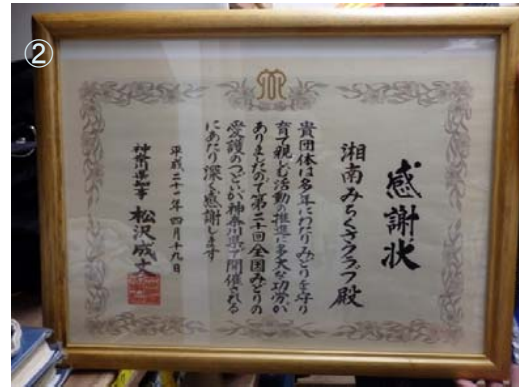 ②
感謝状
湘南みちくさクラブ殿
貴団体は多年にわたりみどりを守り
育て親しむ活動の推進に多大な功労が
ありましたので第二十回全国みどりの
愛護のつどいが神奈川県で開催される
にあたり深く感謝します
平成二十一年四月十九日
神奈川県知事 松沢成文